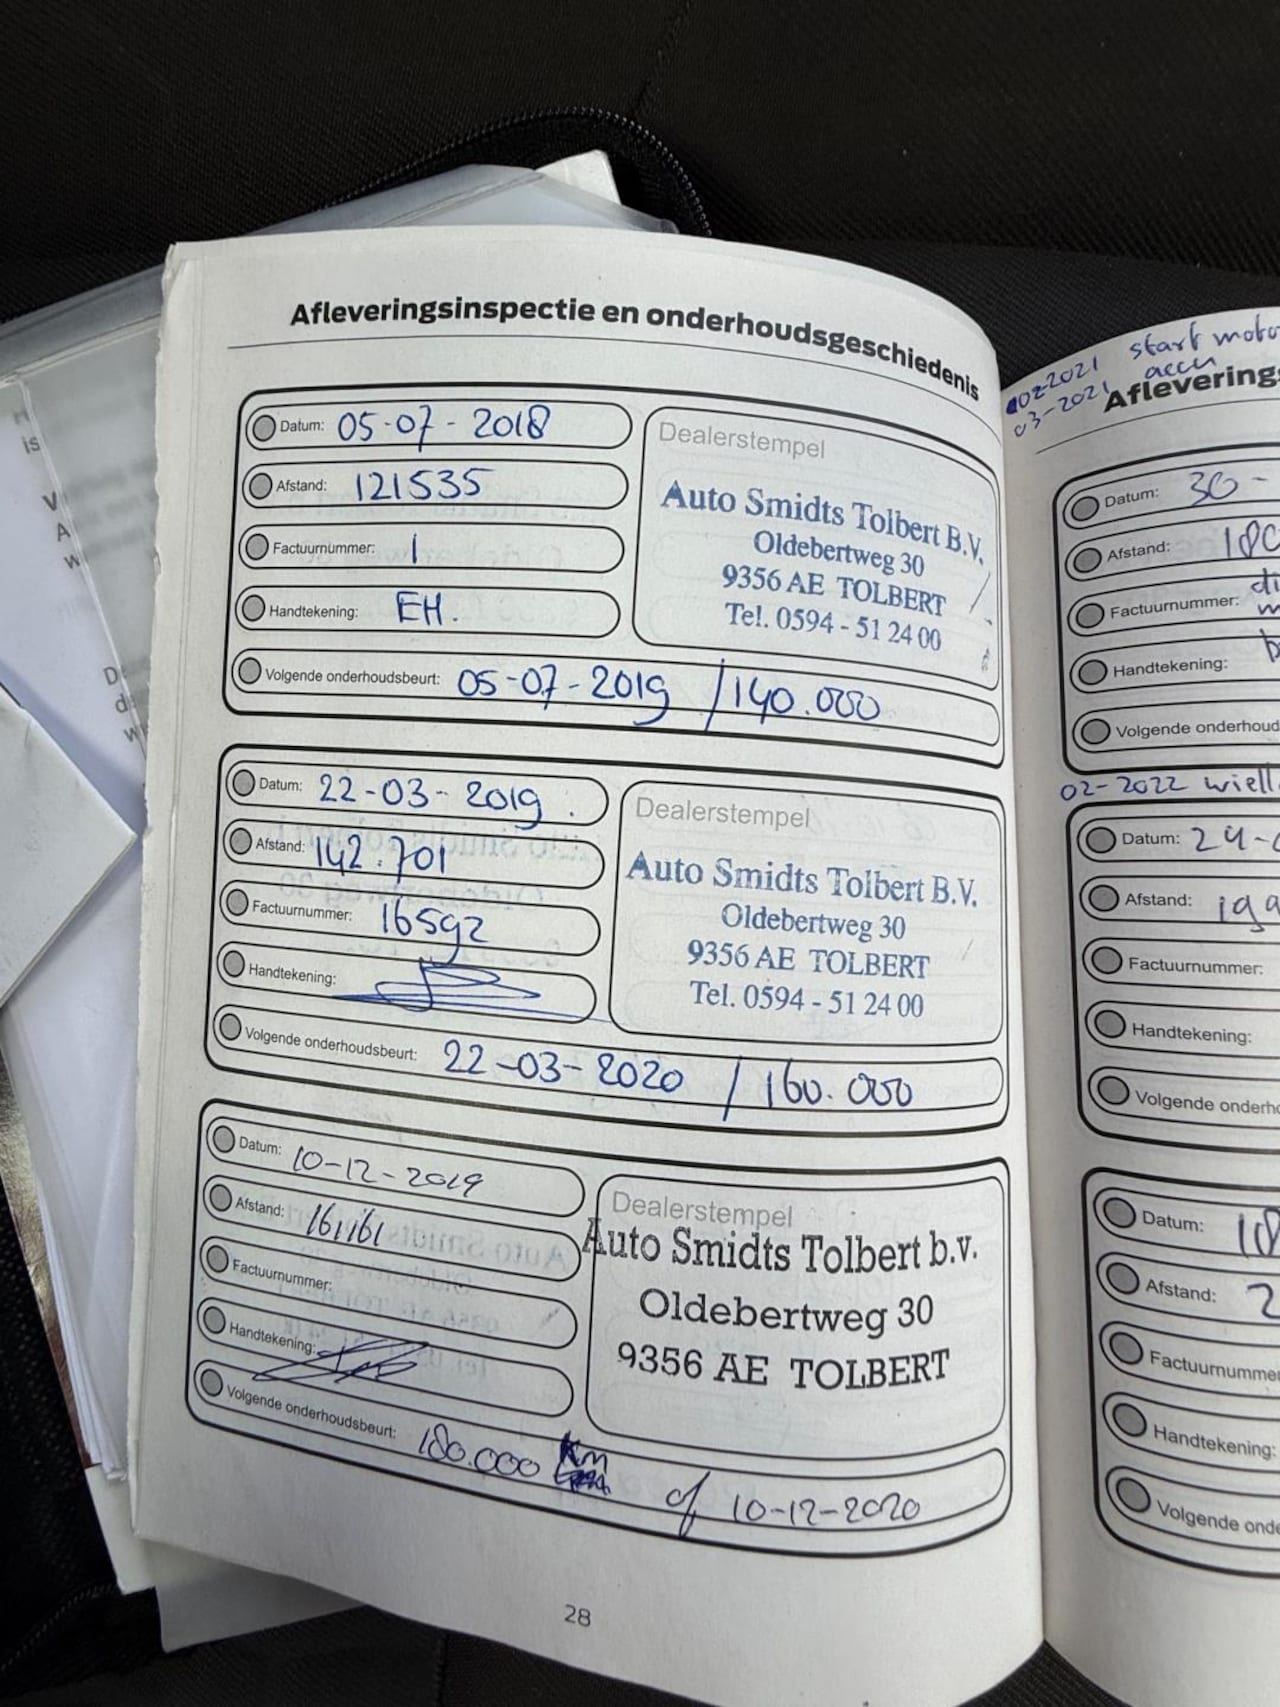 Afleveringsinspectie en onderhoudsgeschiedenis
Datum: 05-07-2018
Afstand: 121535
Factuurnummer: 1
Handtekening: EH.
Volgende onderhoudsbeurt: 05-07-2019 / 140.000
Dealerstempel
Auto Smidts Tolbert B.V.
Oldebertweg 30
9356 AE TOLBERT
Tel. 0594 - 51 24 00
Datum: 22-03-2019.
Afstand: 142.701
Factuurnummer: 16592
Handtekening:
Volgende onderhoudsbeurt: 22-03-2020 / 160.000
Dealerstempel
Auto Smidts Tolbert B.V.
Oldebertweg 30
9356 AE TOLBERT
Tel. 0594 - 51 24 00
Datum: 10-12-2019
Afstand: 161161
Factuurnummer:
Handtekening:
Volgende onderhoudsbeurt: 180.000 Km of 10-12-2020
Dealerstempel
Auto Smidts Tolbert b.v.
Oldebertweg 30
9356 AE TOLBERT
28
02-2021 start moto
03-2021 accu
Aflevering
Datum: 30-
Afstand: 180
Factuurnummer: di
Handtekening:
Volgende onderhoud
02-2022 wiell
Datum: 24-
Afstand: 199
Factuurnummer:
Handtekening:
Volgende onderh
Datum: 18
Afstand: 2
Factuurnumme
Handtekening:
Volgende onde